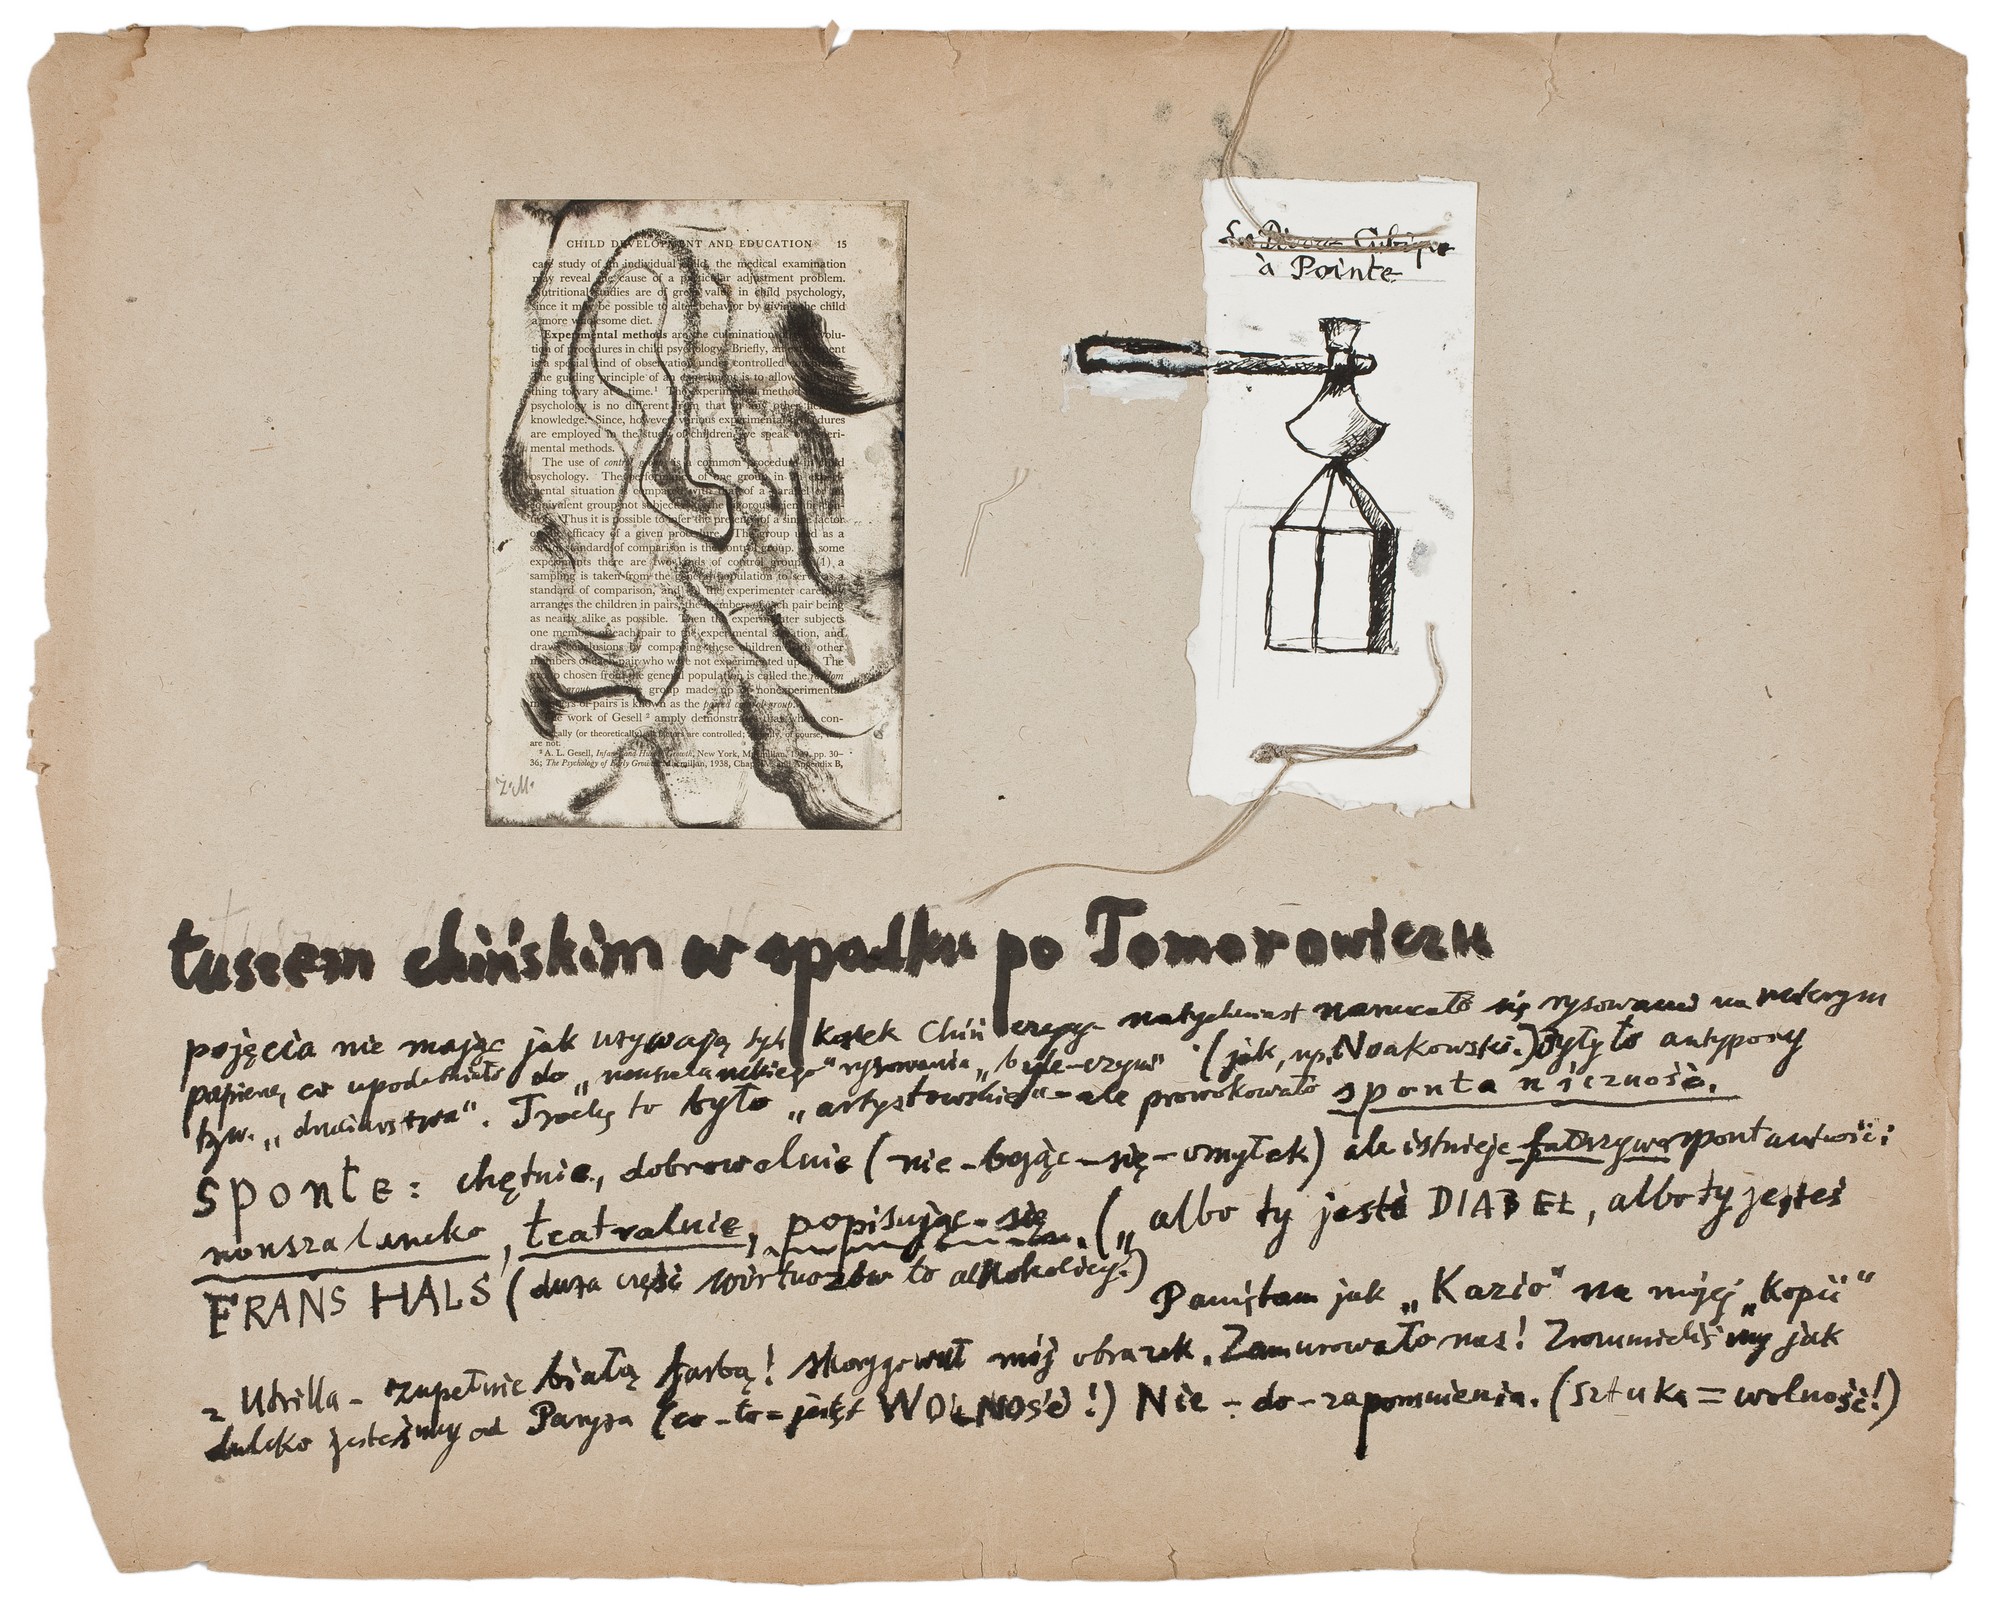 CHILD DEVELOPMENT AND EDUCATION 15
case study of an individual child, the medical examination
may reveal the cause of a particular adjustment problem.
Nutritional studies are of great value in child psychology,
since it may be possible to alter behavior by giving the child
a more wholesome diet.
Experimental methods are the culmination of evolu-
tion of procedures in child psychology. Briefly, an experiment
is a special kind of observation under controlled
The guiding principle of an experiment is to allow
thing to vary at a time.¹ The experimental method
psychology is no different from that in any other field
knowledge. Since, however, various experimental procedures
are employed in the study of children, we speak of experi-
mental methods.
The use of control group is a common procedure in child
psychology. The performance of one group in an experi-
mental situation is compared with that of a parallel or an
equivalent group not subject to the rigorous
Thus it is possible to infer the presence of a single factor
or the efficacy of a given procedure. The group used as a
standard of comparison is the control group. In some
experiments there are two kinds of control group: (1) a
sampling is taken from the general population to serve as a
standard of comparison, and the experimenter carefully
arranges the children in pairs, the members of each pair being
as nearly alike as possible. Then the experimenter subjects
one member of each pair to the experimental situation, and
draws conclusions by comparing these children with other
members of each pair who were not experimented upon. The
group chosen from the general population is called the random
group made up of nonexperimental
members of pairs is known as the paired control group.
The work of Gesell ² amply demonstrates that when con-
ically (or theoretically) all factors are controlled; of course,
are not.
² A. L. Gesell, Infancy and Human Growth, New York, Macmillan, pp. 30–
36; The Psychology of Early Growth, Macmillan, 1938, Chap. and Appendix B,
Ż.M.
à Pointe
tuszem chińskim w spadku po Tomorowiczu
pojęcia nie mając jak używają tych kostek Chińczycy natychmiast narzucało się rysowanie na mokrym
papierze, co upodobniało do „nonszalanckiego" rysowania „byle-czym" (jak, np. Noakowski.) byłyto antypody
tzw. „druciarstwa". Trochę to było „artystowskie" - ale prowokowało spontaniczność.
sponte: chętnie, dobrowolnie (nie-bojąc-się-omyłek) ale istnieje fałszywa spontaniczność:
nonszalancko, teatralnie, popisując-się. („albo ty jesteś DIABEŁ, albo ty jesteś
FRANS HALS (duża część wirtuozów to alkoholicy!)
Pamiętam jak „Kazio" na mojej „kopii"
z Utrilla - zupełnie białą farbą! skorygował mój obrazek. Zamurowało nas! Zrozumieliśmy jak
daleko jesteśmy od Paryża (co-to-jest WOLNOŚĆ!) Nie-do-zapomnienia. (sztuka = wolność!)